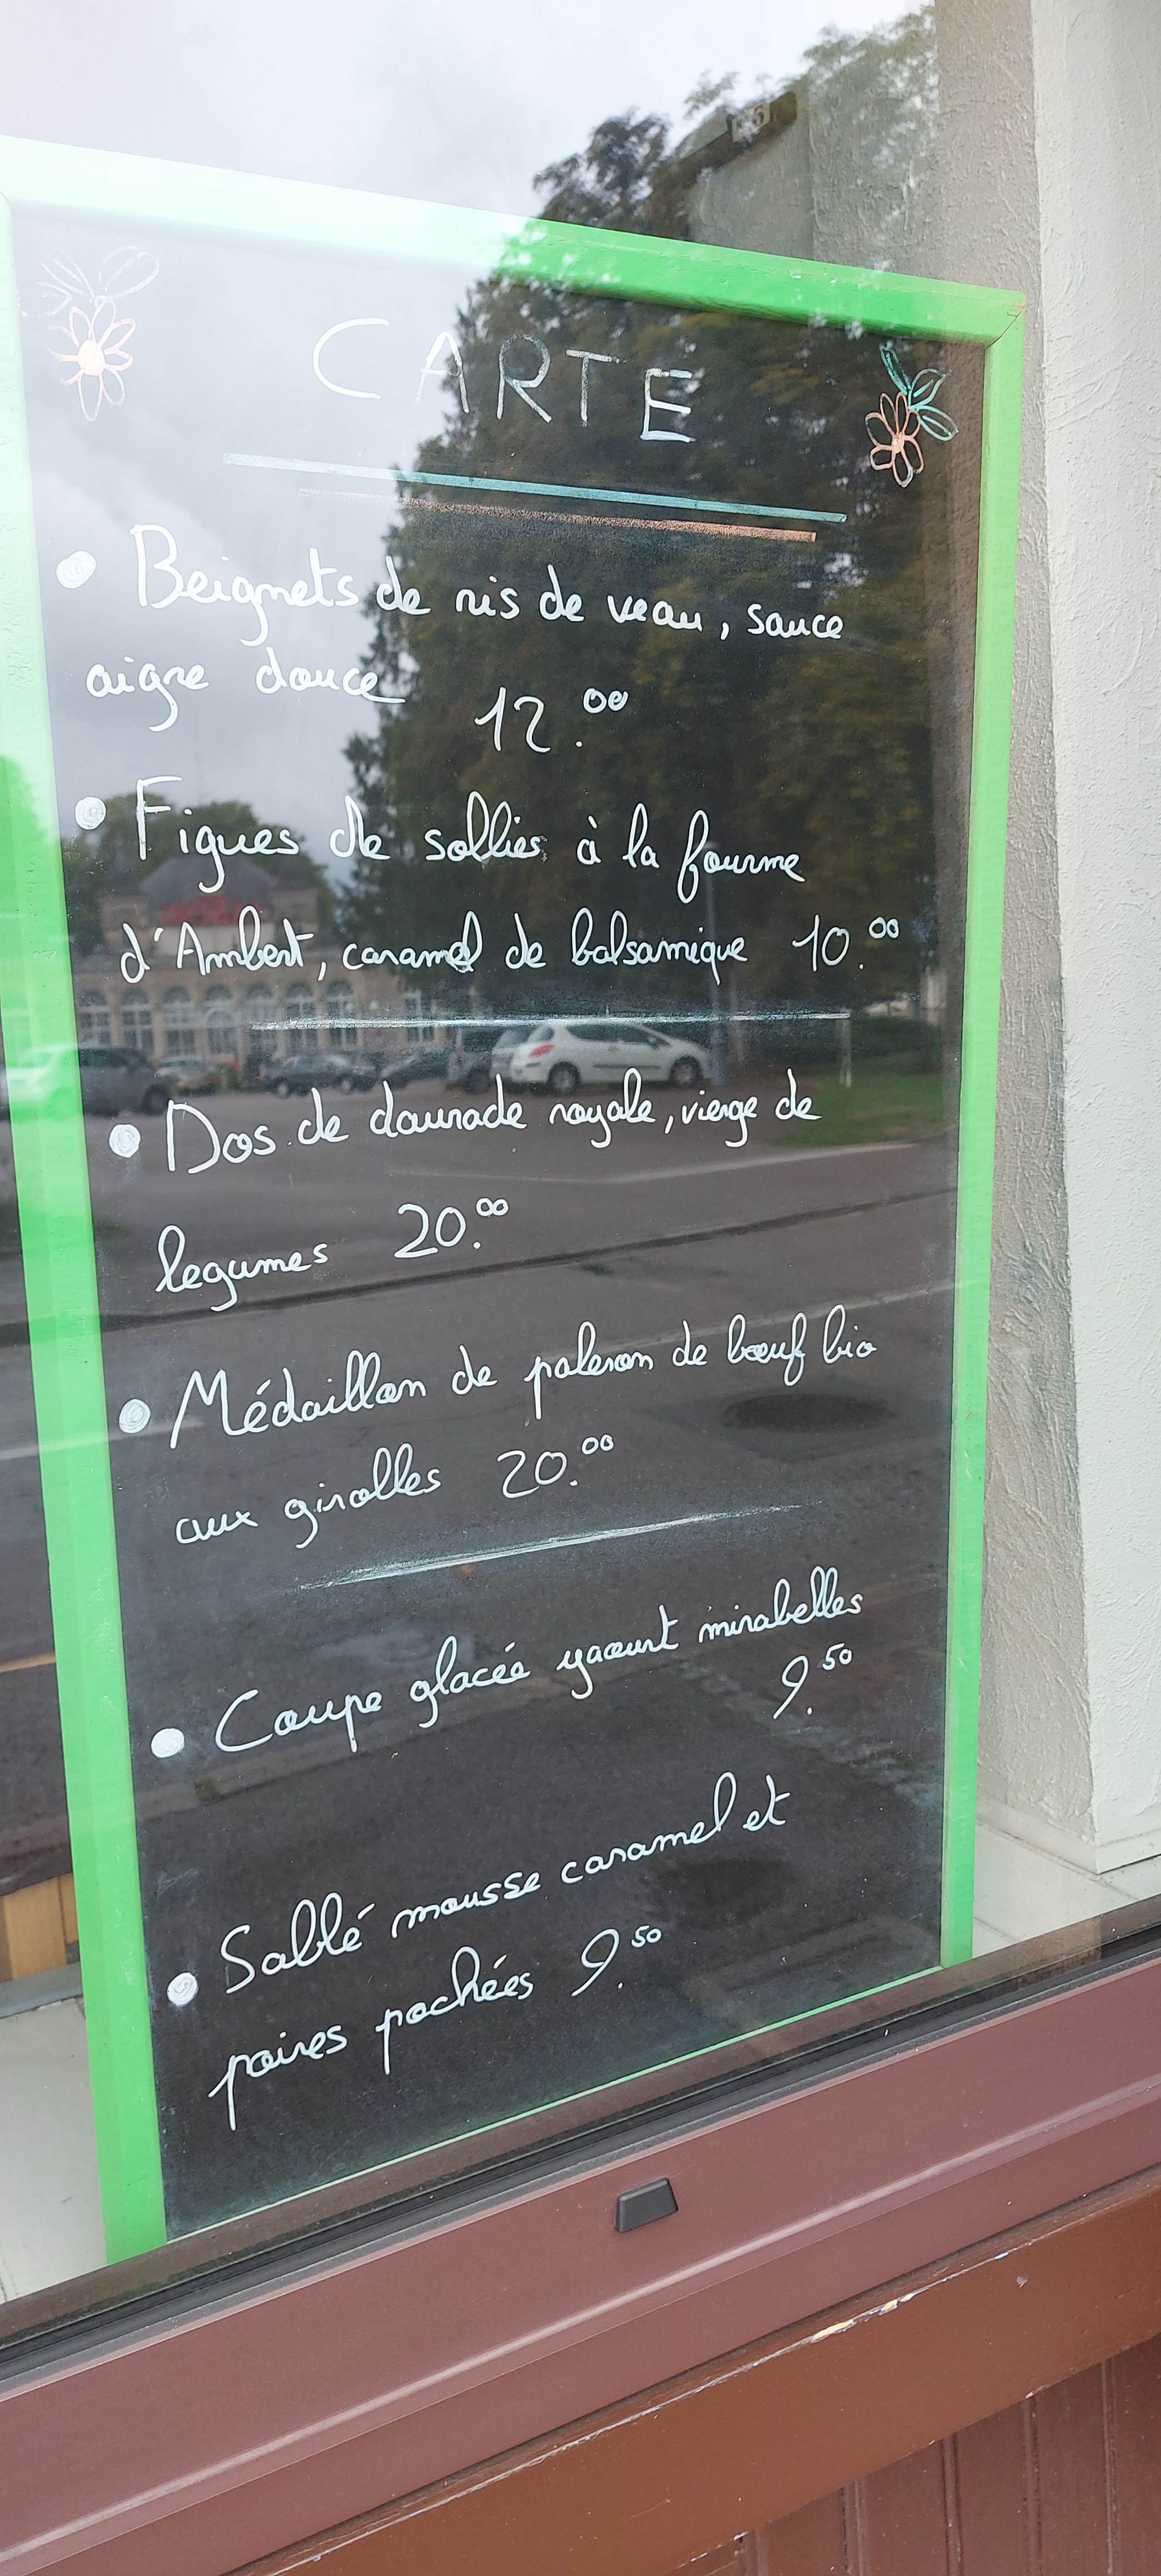 CARTE
• Beignets de ris de veau, sauce
aigre douce 12.00
• Figues de solliès à la fourme
d'Ambert, caramel de balsamique 10.00
• Dos de daurade royale, vierge de
legumes 20.00
• Médaillon de paleron de bœuf bio
aux girolles 20.00
• Coupe glacée yaourt mirabelles
9.50
• Sablé mousse caramel et
poires pochées 9.50